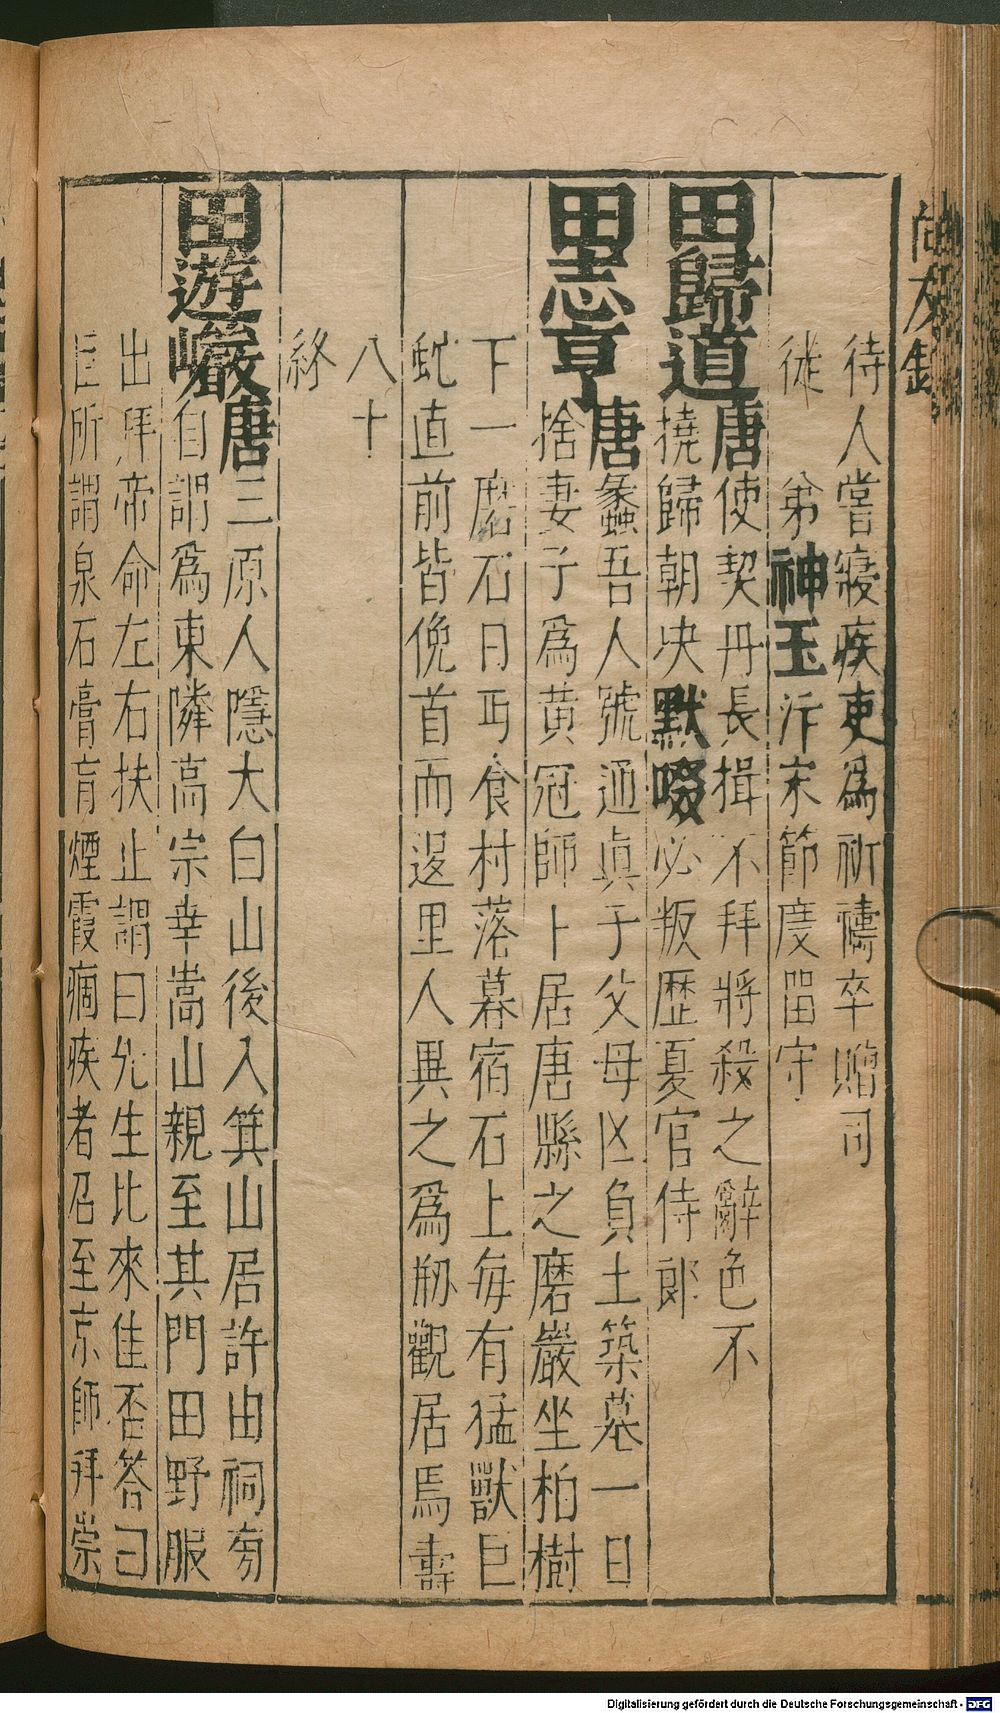 待人嘗寢疾吏爲祈禱卒贈司
徒 弟神玉汴宋節度留守
田歸道唐使契丹長揖不拜將殺之辭色不
撓歸朝決默啜必叛歷夏官侍郎
田志亨唐蠡吾人號通眞子父母凶負土築墓一日
捨妻子爲黄冠師卜居唐縣之磨巖坐柏樹
下一磨石日丏食村落暮宿石上每有猛獸巨
虵直前皆俛首而逡里人異之爲剏觀居焉壽
八十
終
田遊巖唐三原人隱大白山後入箕山居許由祠旁
自謂爲東隣高宗幸嵩山親至其門田野服
出拜帝命左右扶止謂曰先生比來佳否答曰
臣所謂泉石膏肓煙霞痼疾者召至京師拜崇
Digitalisierung gefördert durch die Deutsche Forschungsgemeinschaft - DFG